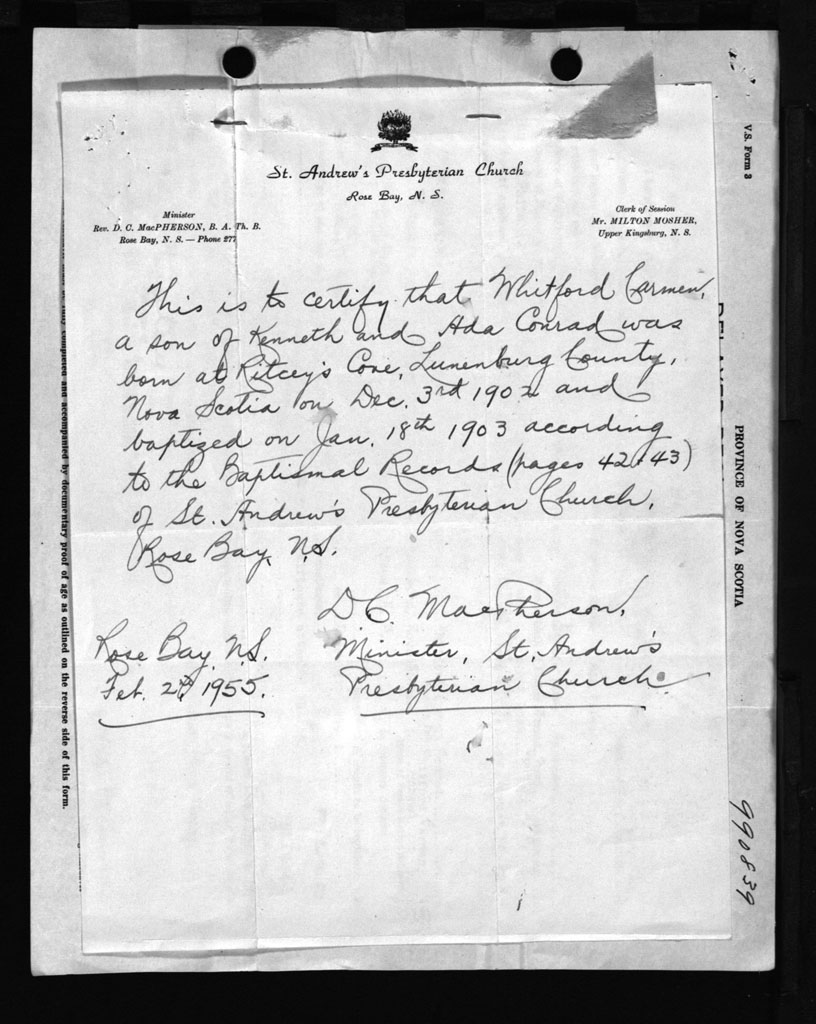 St. Andrew's Presbyterian Church
Rose Bay, N. S.
Minister
Rev. D. C. MacPHERSON, B. A. Th. B.
Rose Bay, N. S. — Phone 277
Clerk of Session
Mr. MILTON MOSHER,
Upper Kingsburg, N. S.
This is to certify that Whitford Carmen,
a son of Kenneth and Ada Conrad was
born at Ritcey's Cove, Lunenburg County,
Nova Scotia on Dec. 3rd 1902 and
baptized on Jan. 18th 1903 according
to the Baptismal Records (pages 42+43)
of St. Andrew's Presbyterian Church,
Rose Bay, N.S.
D.C. MacPherson,
Minister, St. Andrew's
Presbyterian Church.
Rose Bay, N.S.
Feb. 1955.
V.S. Form 3
PROVINCE OF NOVA SCOTIA
990839
completed and accompanied by documentary proof of age as outlined on the reverse side of this form.